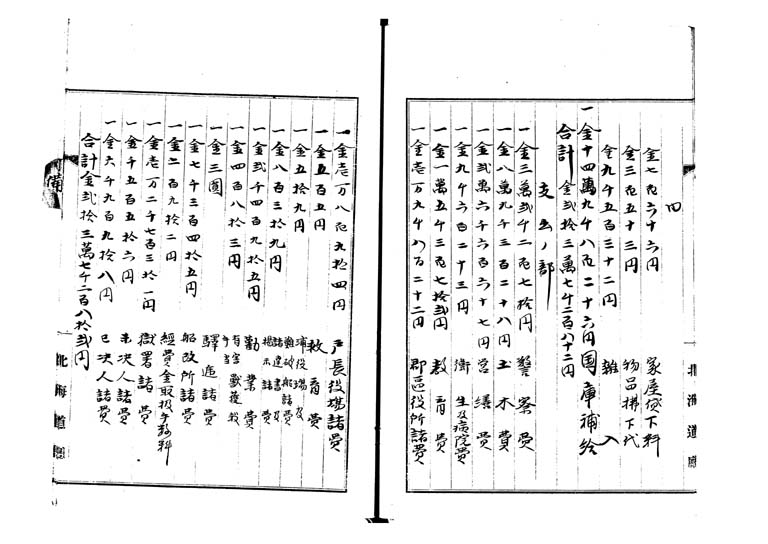 四
金七百六十六円 家屋貸下料
金三百五十三円 物品拂下代
金九千五百三十二円 雑入
一金十四萬九千八百二十六円 国庫補給
合計金弐拾三萬七千二百八十二円
支出ノ部
一金三萬弐千二百七拾円 警察費
一金八萬九千三百二十八円 土木費
一金弐萬六千六百六十七円 営繕費
一金九千六百二十三円 衛生及病院費
一金一萬五千三百七拾弐円 教育費
一金壱万九千八百二十二円 郡区役所諸費
北海道廳
一金壱万八百九拾四円 戸長役場諸費
一金五百五円 救育費
一金五拾九円 浦役場及難破船諸費
一金八百三拾九円 諸達書及掲示諸費
一金弐千四百九拾五円 勧業費
一金四百八拾三円 有害獣獲殺手当
一金三圓 驛逓諸費
一金七千三百四拾五円 船改所諸費
一金二百九拾二円 経費金取扱手数料
一金壱万二千七百三拾一円 獄署諸費
一金千五百五拾六円 未決人諸費
一金六千九百九拾八円 已決人諸費
合計金弐拾三萬七千二百八拾弐円
北海道廳
備